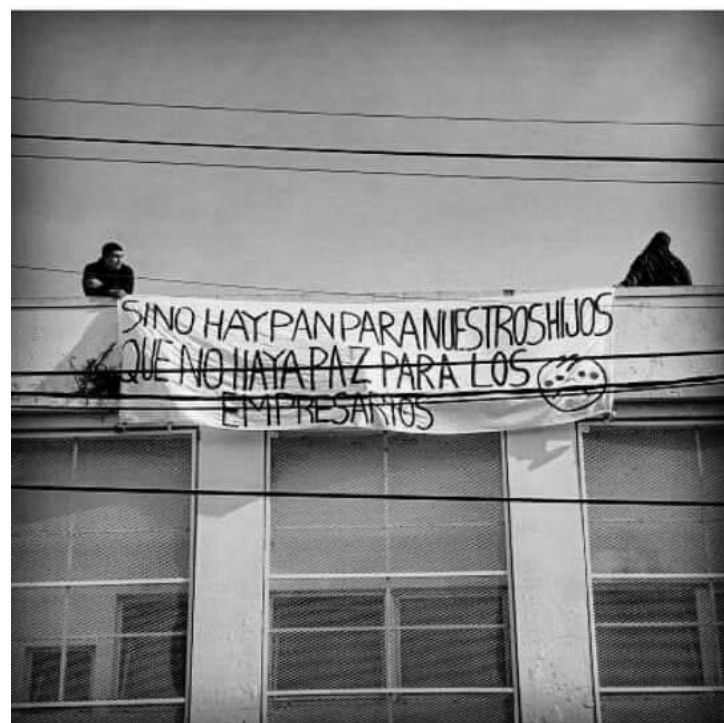 SINO HAY PAN PARA NUESTROS HIJOS
QUE NO HAYA PAZ PARA LOS
EMPRESARIOS